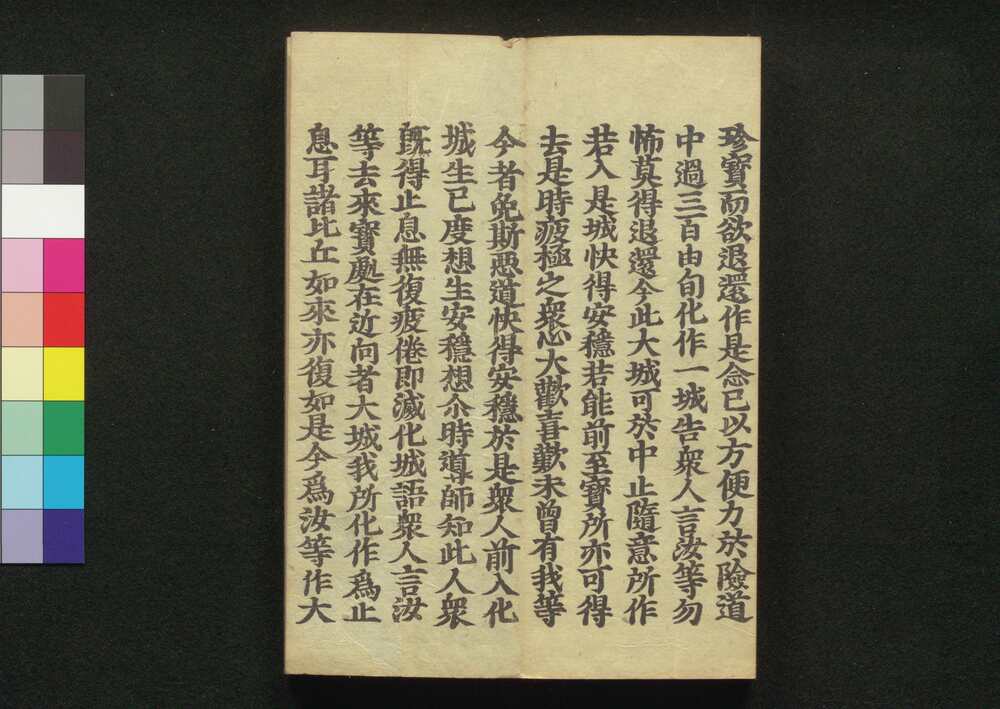 珍寶而欲退還作是念已以方便力於險道
中過三百由旬化作一城告衆人言汝等勿
怖莫得退還今此大城可於中止隨意所作
若入是城快得安穩若能前至寶所亦可得
去是時疲極之衆心大歡喜歎未曾有我等
今者免斯惡道快得安穩於是衆人前入化
城生已度想生安穩想尒時導師知此人衆
既得止息無復疲倦即滅化城語衆人言汝
等去來寶處在近向者大城我所化作爲止
息耳諸比丘如來亦復如是今爲汝等作大